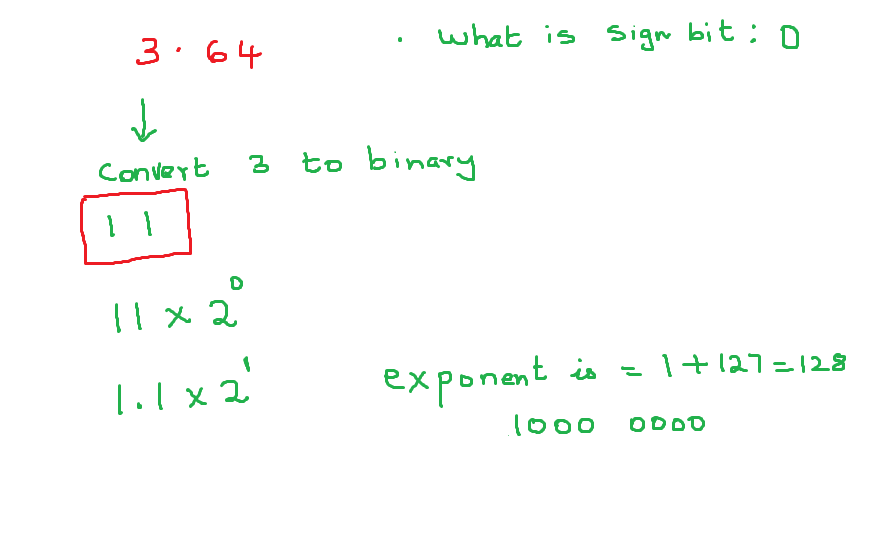 3.64
. what is sign bit : 0
Convert 3 to binary
11
11 x 2⁰
1.1 x 2¹
exponent is = 1+127=128
1000 0000